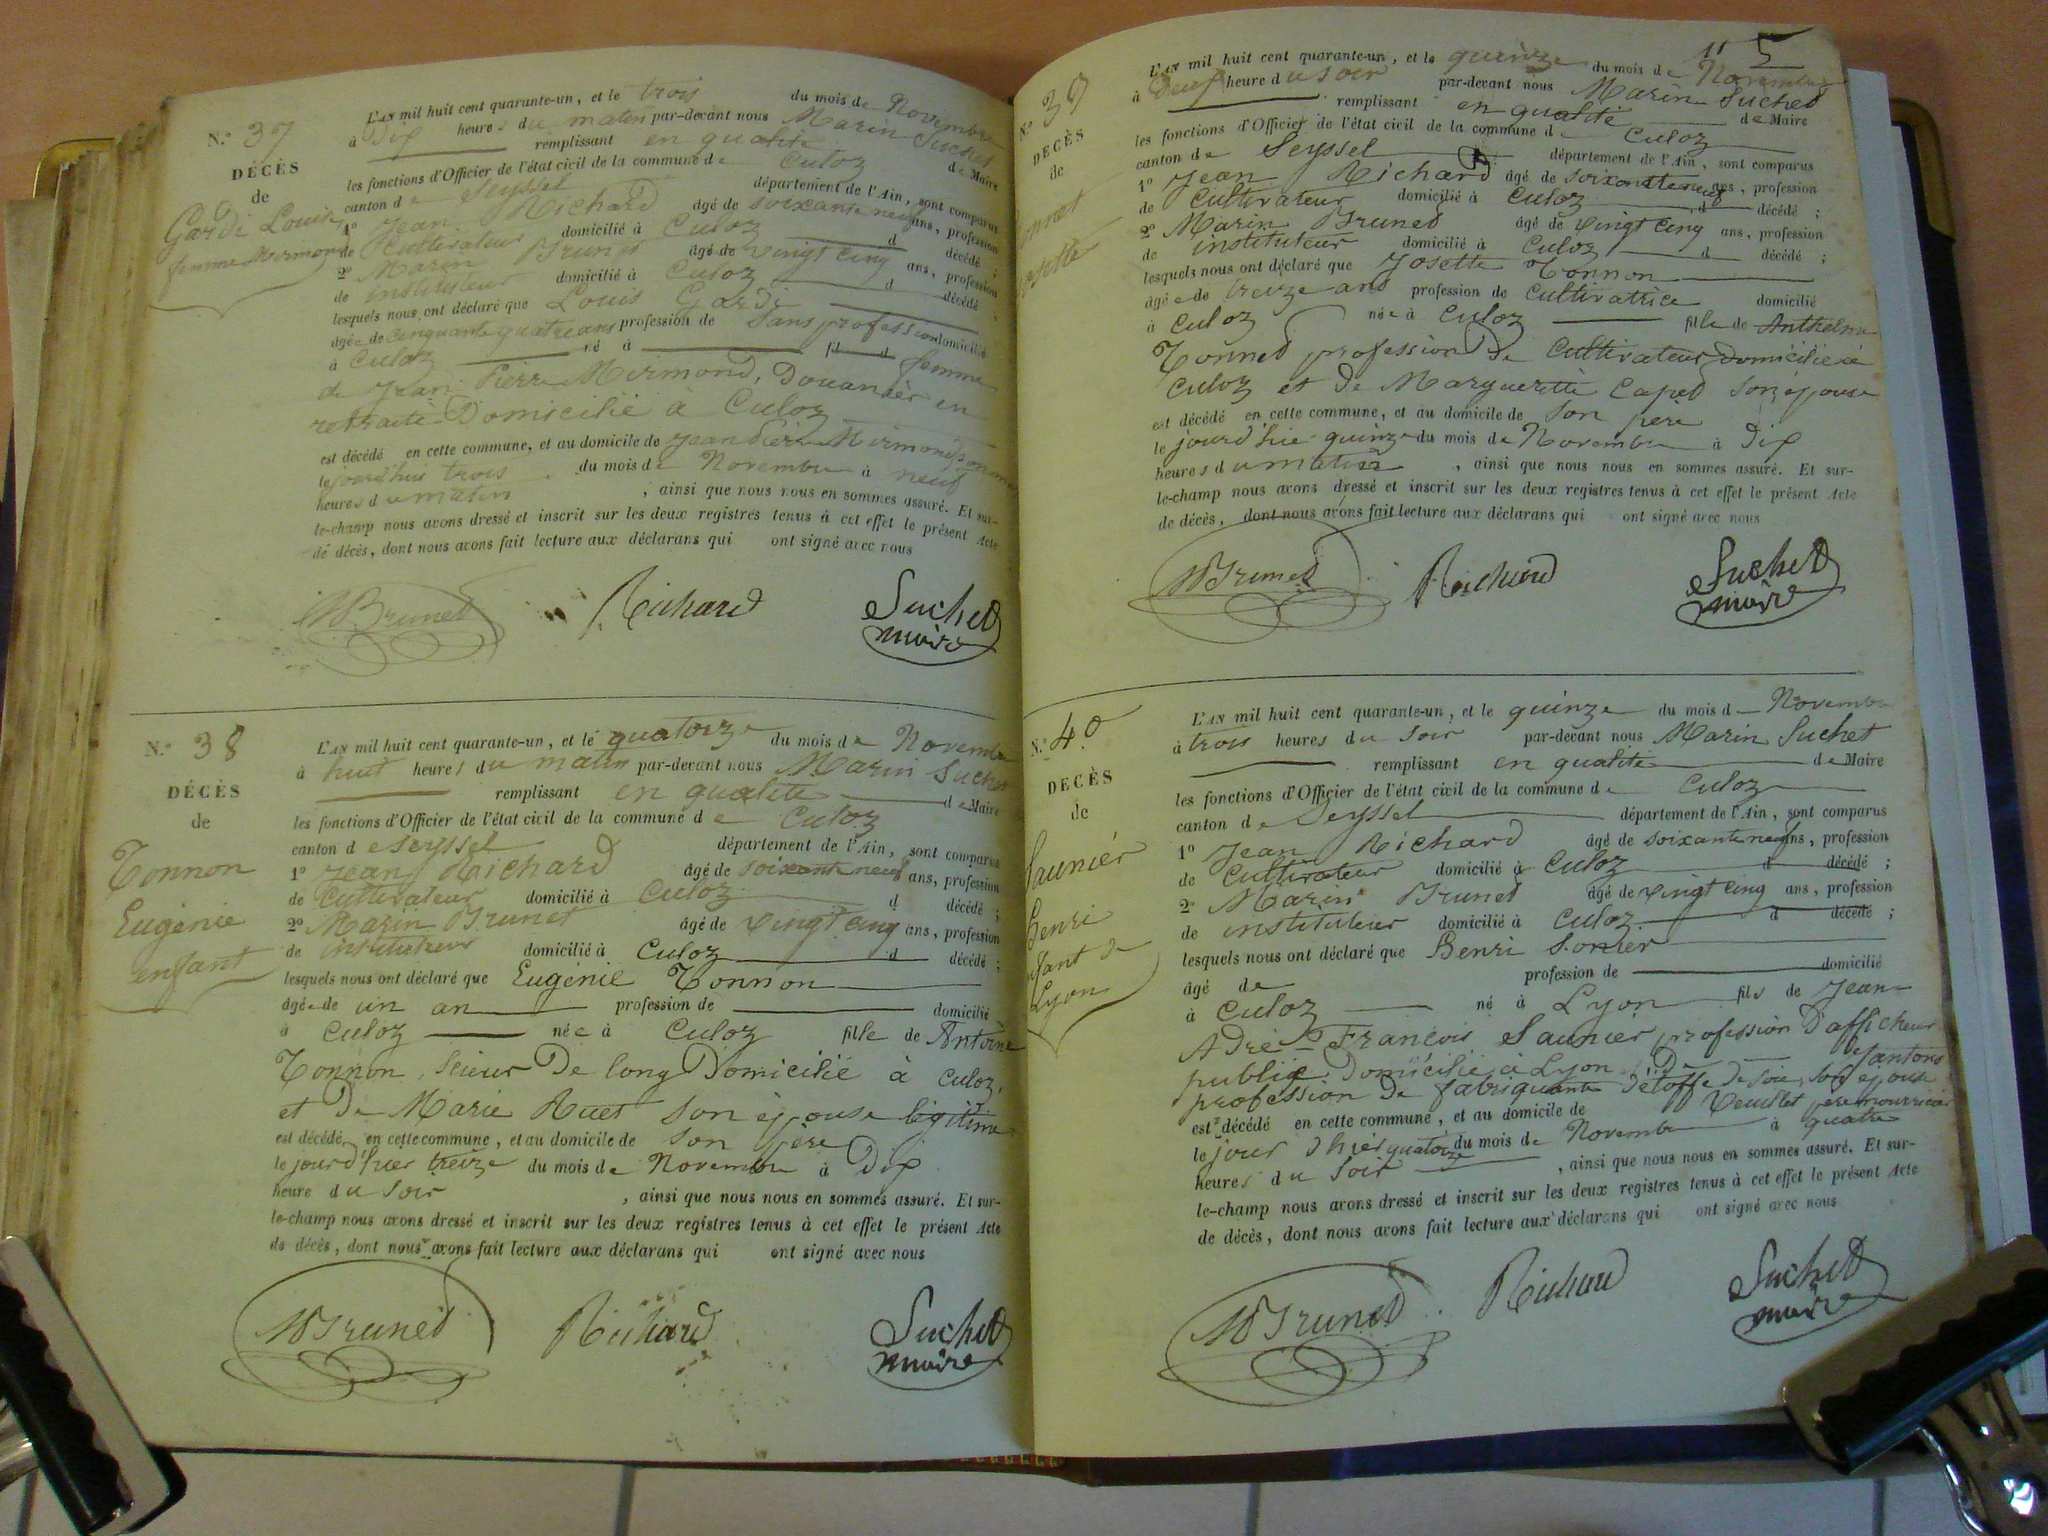 N.º 37
DÉCÈS
de
Gardi Louise
femme Mermond
L'AN mil huit cent quarante-un, et le trois du mois de Novembre
à Dix heures du matin par-devant nous Marin Suchet
remplissant en qualité de Maire
les fonctions d'Officier de l'état civil de la commune de Culoz
canton de Seyssel département de l'Ain, sont comparus
1º Jean Richard âgé de soixante neuf ans, profession
de Cultivateur domicilié à Culoz d décédé ;
2º Marin Brunet âgé de vingt cinq ans, profession
de instituteur domicilié à Culoz d décédé ;
lesquels nous ont déclaré que Louis Gardi
âgée de cinquante quatre ans profession de Sans profession domicilié
à Culoz né à fil d femme
de Jean Pierre Mermond, Douanier en
retraite Domicilié à Culoz
est décédé en cette commune, et au domicile de Jean Pierre Mermond
le jourd'hui trois du mois de Novembre à neuf
heures du matin , ainsi que nous nous en sommes assuré. Et sur-
le-champ nous avons dressé et inscrit sur les deux registres tenus à cet effet le présent Acte
de décès, dont nous avons fait lecture aux déclarans qui ont signé avec nous
MBrunet Richard Suchet
maire
N.º 38
DÉCÈS
de
Tonnon
Eugénie
enfant
L'AN mil huit cent quarante-un, et le quatorze du mois de Novembre
à huit heures du matin par-devant nous Marin Suchet
remplissant en qualité de Maire
les fonctions d'Officier de l'état civil de la commune de Culoz
canton de Seyssel département de l'Ain, sont comparus
1º Jean Richard âgé de soixante neuf ans, profession
de Cultivateur domicilié à Culoz d décédé ;
2º Marin Brunet âgé de vingt cinq ans, profession
de instituteur domicilié à Culoz d décédé ;
lesquels nous ont déclaré que Eugénie Tonnon
âgée de un an profession de domicilié
à Culoz née à Culoz fille de Antoine
Tonnon, Scieur De long Domicilié à Culoz,
et De Marie Ruet son épouse légitime
est décédé en cette commune, et au domicile de son père
le jourd'hier treize du mois de Novembre à Dix
heure du soir , ainsi que nous nous en sommes assuré. Et sur-
le-champ nous avons dressé et inscrit sur les deux registres tenus à cet effet le présent Acte
de décès, dont nous avons fait lecture aux déclarans qui ont signé avec nous
MBrunet Richard Suchet
maire
11 5
N.º 39
DÉCÈS
de
L'AN mil huit cent quarante-un, et le quinze du mois de Novembre
à Deux heure du soir par-devant nous Marin Suchet
remplissant en qualité de Maire
les fonctions d'Officier de l'état civil de la commune de Culoz
canton de Seyssel département de l'Ain, sont comparus
1º Jean Richard âgé de soixante neuf ans, profession
de Cultivateur domicilié à Culoz d décédé ;
2º Marin Brunet âgé de vingt cinq ans, profession
de instituteur domicilié à Culoz d décédé ;
lesquels nous ont déclaré que Josette Tonnon
âgée de treize ans profession de Cultivatrice domicilié
à Culoz née à Culoz fille de Anthelme
Tonnet profession De Cultivateur Domicilié à
Culoz et De Marguerite Caped son épouse
est décédé en cette commune, et au domicile de son père
le jourd'hui quinze du mois de Novembre à Dix
heures du matin , ainsi que nous nous en sommes assuré. Et sur-
le-champ nous avons dressé et inscrit sur les deux registres tenus à cet effet le présent Acte
de décès, dont nous avons fait lecture aux déclarans qui ont signé avec nous
MBrunet Richard Suchet
maire
N.º 40
DÉCÈS
de
Saunier
Henri
enfant de
Lyon
L'AN mil huit cent quarante-un, et le quinze du mois d Novembre
à trois heures du soir par-devant nous Marin Suchet
remplissant en qualité de Maire
les fonctions d'Officier de l'état civil de la commune de Culoz
canton de Seyssel département de l'Ain, sont comparus
1º Jean Richard âgé de soixante neuf ans, profession
de Cultivateur domicilié à Culoz d décédé ;
2º Marin Brunet âgé de vingt cinq ans, profession
de instituteur domicilié à Culoz d décédé ;
lesquels nous ont déclaré que Henri Sonier
âgé de profession de domicilié
à Culoz né à Lyon fils de Jean
François Saunier profession D'afficheur
public Domicilié à Lyon, De
profession De fabriquante D'étoffe De soie, son épouse
est décédé en cette commune, et au domicile de père nourricier
le jour d'hier quatorze du mois de Novembre à quatre
heures du soir , ainsi que nous nous en sommes assuré. Et sur-
le-champ nous avons dressé et inscrit sur les deux registres tenus à cet effet le présent Acte
de décès, dont nous avons fait lecture aux déclarans qui ont signé avec nous
MBrunet Richard Suchet
maire